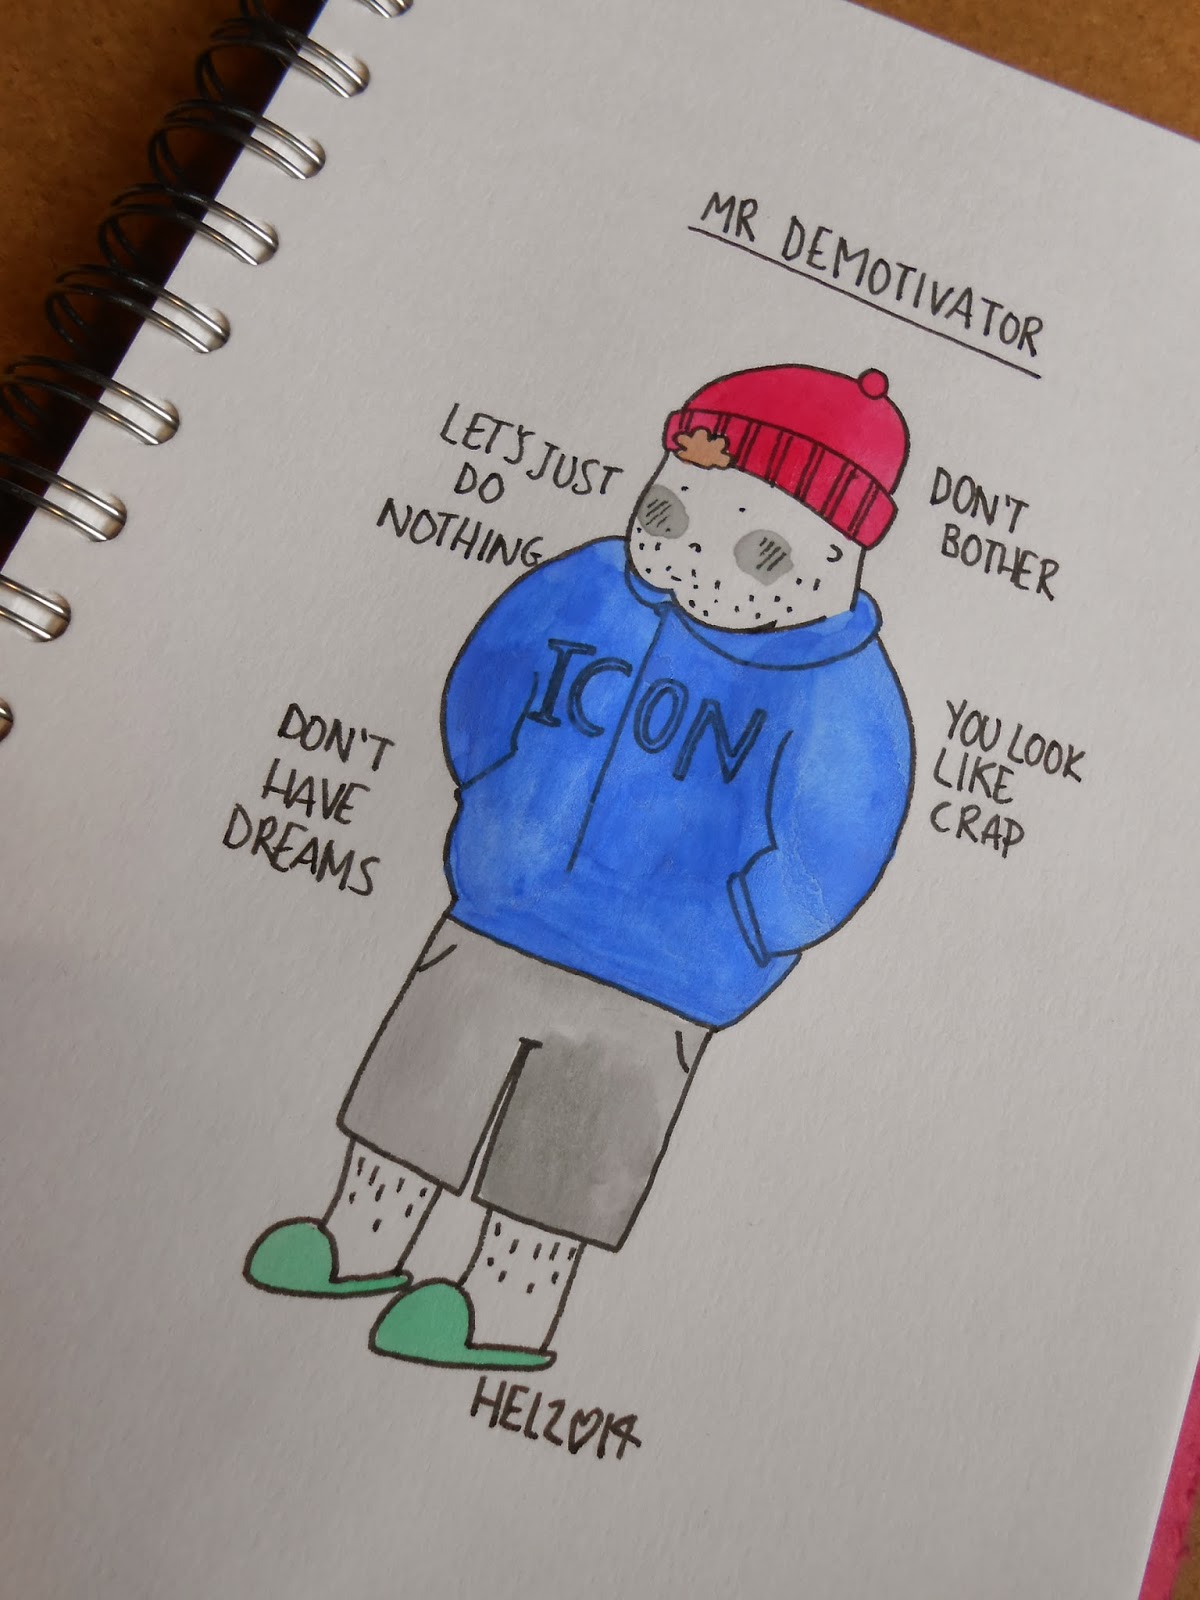 MR DEMOTIVATOR
LET'S JUST
DO
NOTHING
DON'T
BOTHER
ICON
DON'T
HAVE
DREAMS
YOU LOOK
LIKE
CRAP
HEL2014